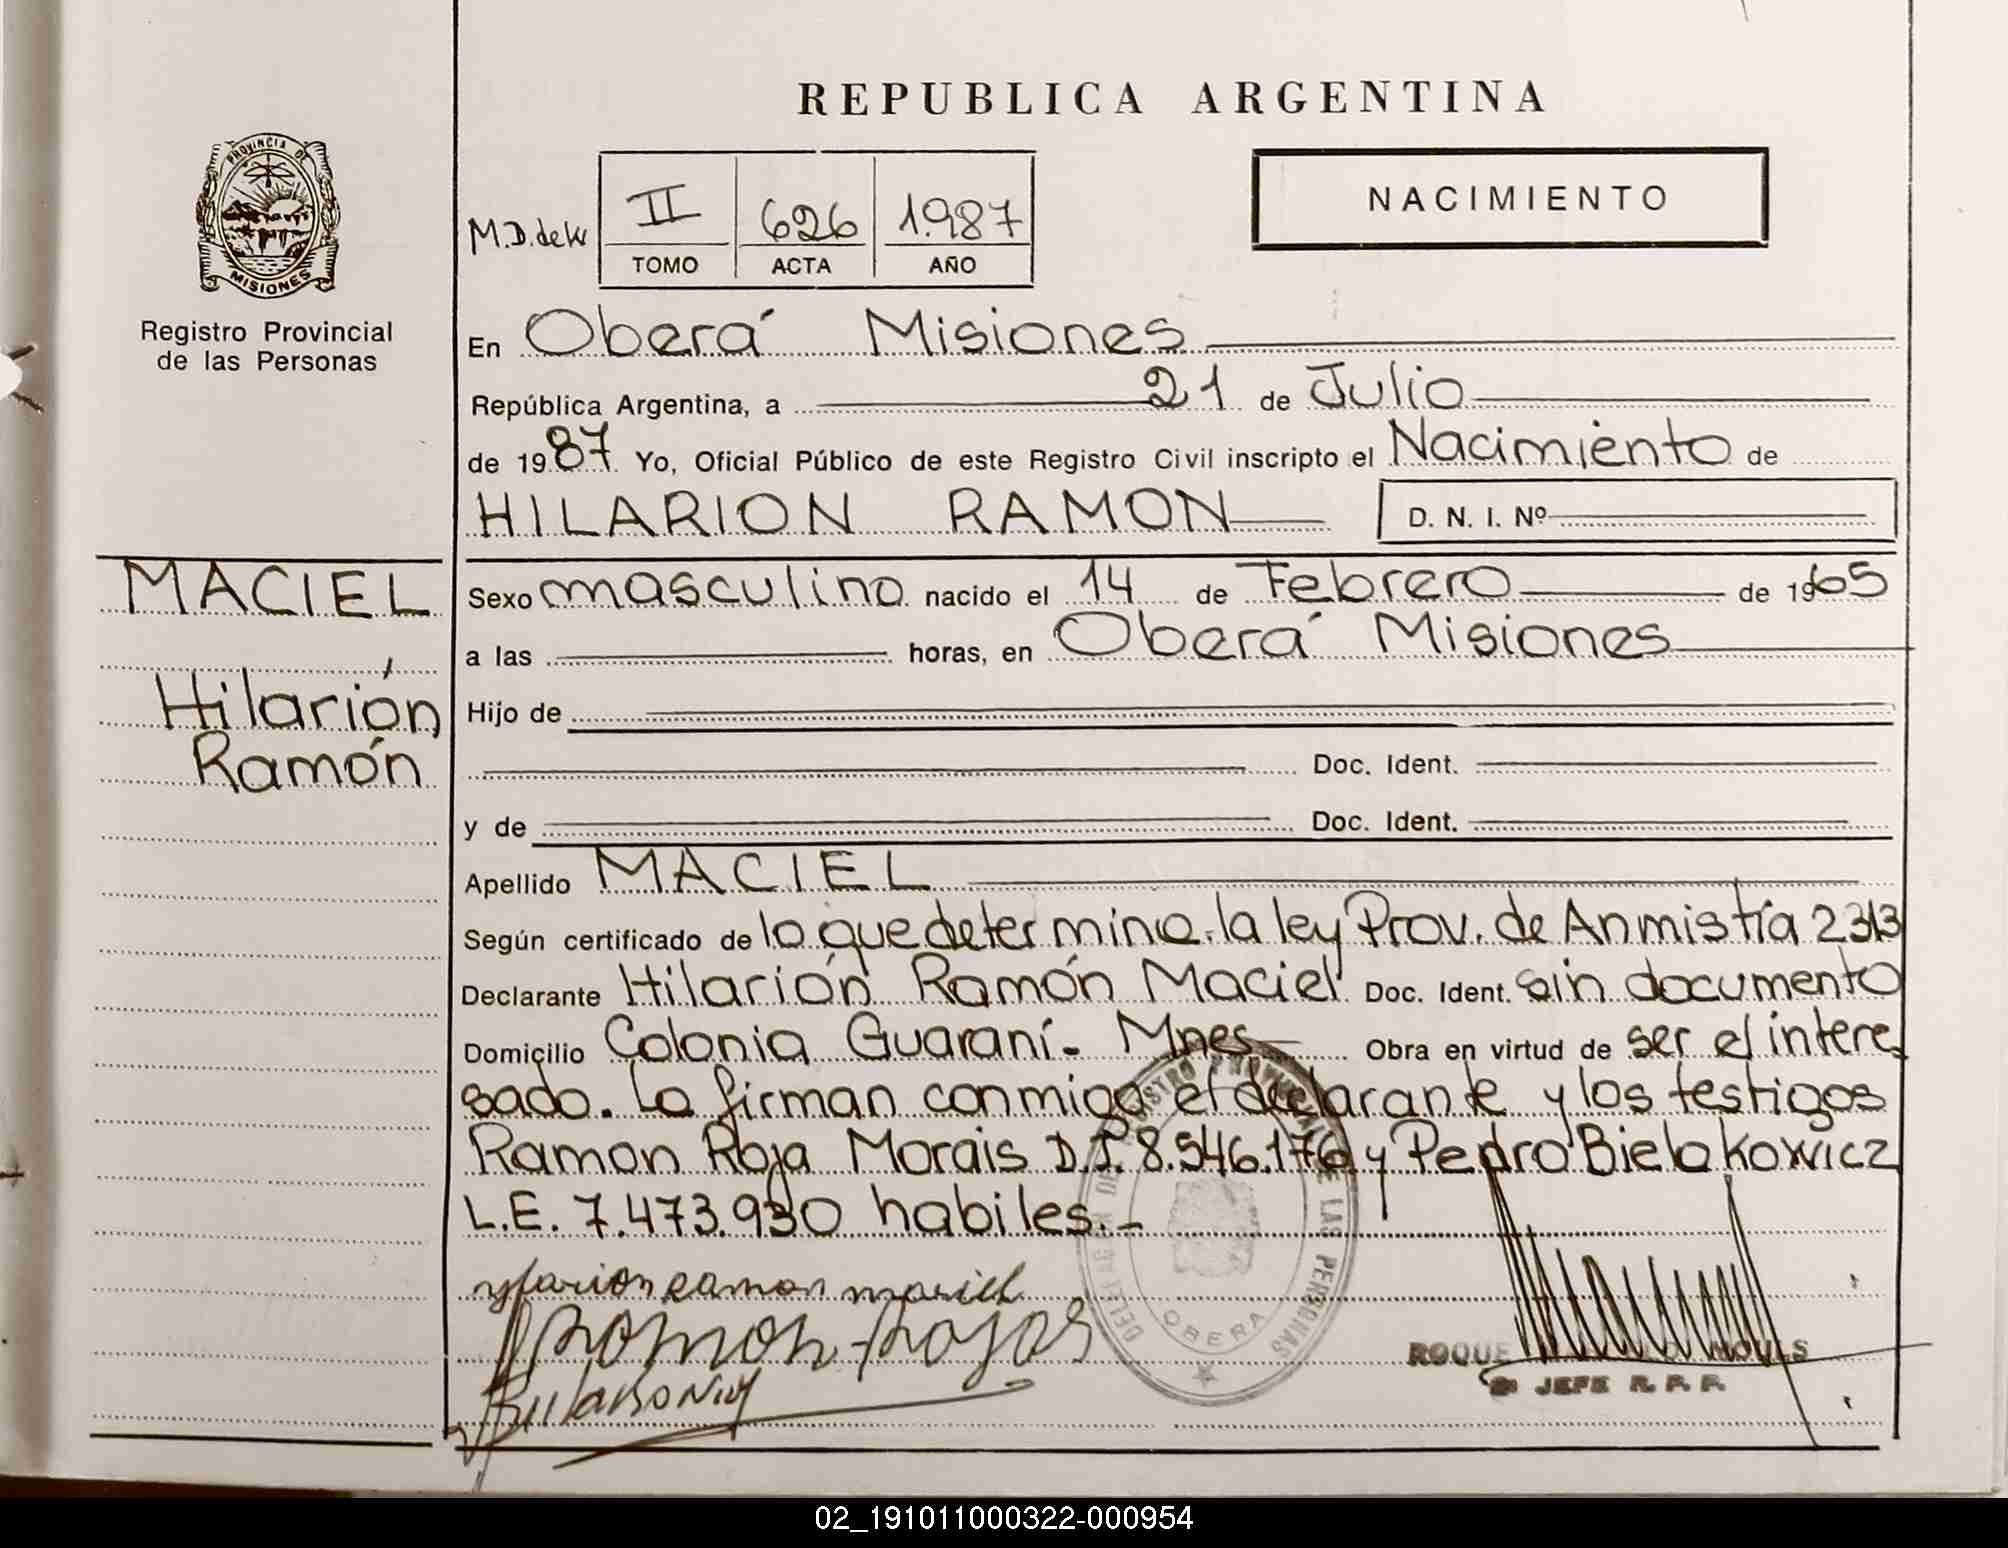 REPUBLICA ARGENTINA
PROVINCIA DE
MISIONES
Registro Provincial
de las Personas
M.D. de
II 626 1.987
TOMO ACTA AÑO
NACIMIENTO
En Oberá Misiones
República Argentina, a 21 de Julio
de 1987 Yo, Oficial Público de este Registro Civil inscripto el Nacimiento de
HILARION RAMON D. N. I. Nº
MACIEL
Hilarión
Ramón
Sexo masculino nacido el 14 de Febrero de 1965
a las horas, en Oberá Misiones
Hijo de
Doc. Ident.
y de Doc. Ident.
Apellido MACIEL
Según certificado de lo que determina la ley Prov. de Anmistía 2313
Declarante Hilarión Ramón Maciel Doc. Ident. sin documento
Domicilio Colonia Guaraní - Mnes Obra en virtud de ser el intere
sado. Lo firman conmigo el declarante y los testigos
Ramon Roja Morais D.I. 8.546.176 y Pedro Bielakowicz
L.E. 7.473.930 habiles.-
Ylarion Ramon Maciel
Ramon Rojas
DELEGACION DE REGISTRO PROVINCIAL DE LAS PERSONAS
OBERA
ROQUE
JEFE R. P. P.
02_191011000322-000954